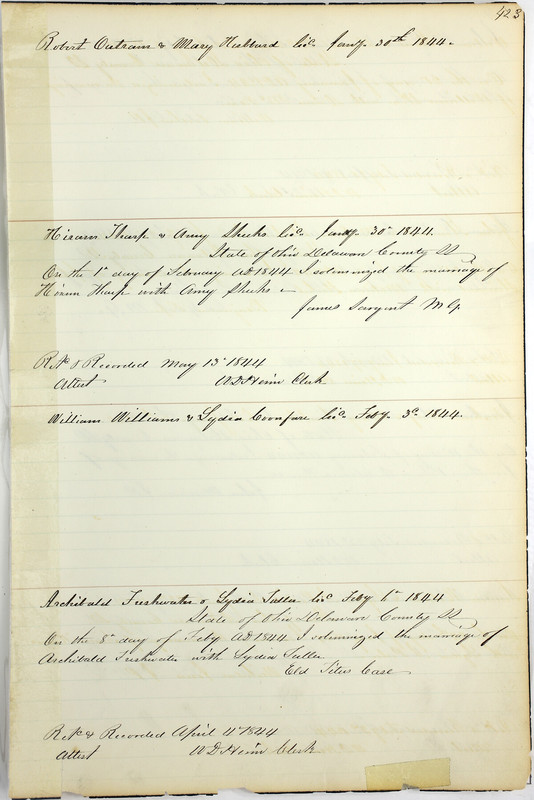 423
Robert Outram & Mary Hubburd lic. Jany. 30th 1844.
Hiram Tharp & Amy Sheeks lic. Jany. 30th 1844.
State of Ohio Delaware County SS
On the 1st day of February AD 1844 I solemnized the marriage of
Hiram Tharp with Amy Sheeks
James Sargent M.G.
Recd & Recorded May 13th 1844
Attest
Clerk
William Williams & Lydia lic. Feby. 3d. 1844.
Archibald Freshwater & Lydia Tuller lic Feby 6th 1844
State of Ohio Delaware County SS
On the 8th day of Feby AD 1844 I solemnized the marriage of
Archibald Freshwater with Lydia Tuller
Eld Titus Case
Recd & Recorded April 4th 1844
Attest
Clerk